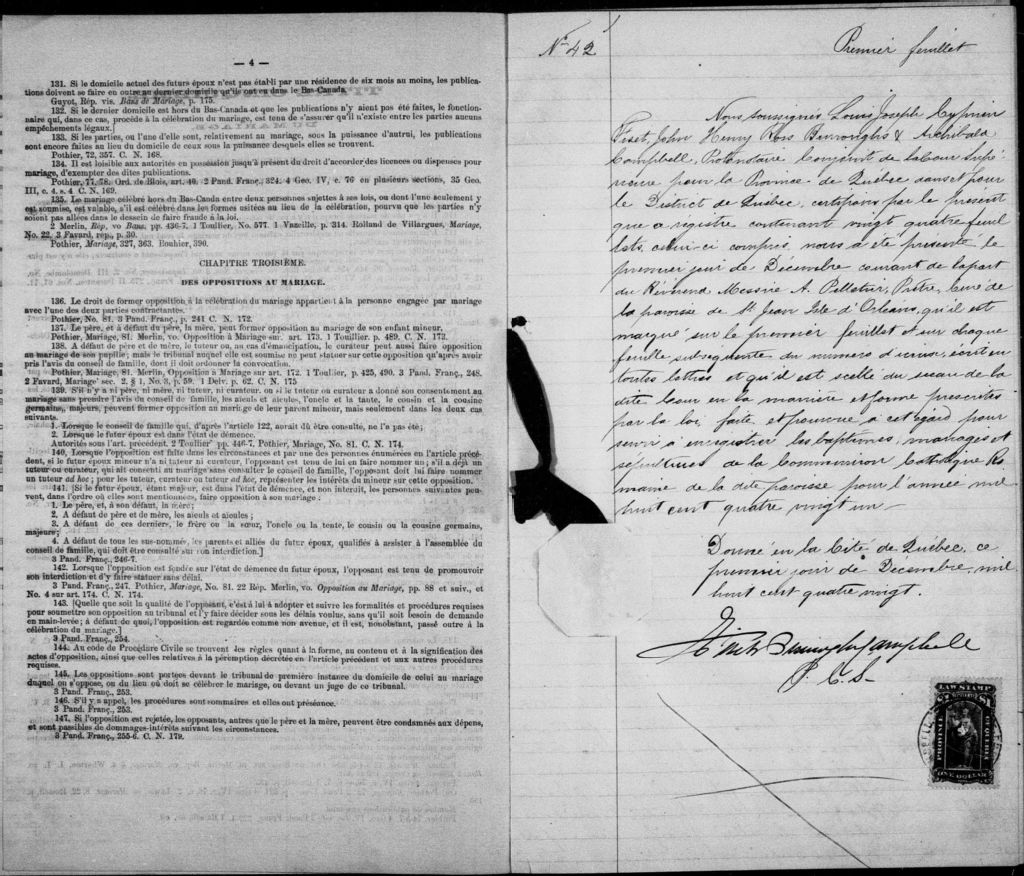 — 4 —
131. Si le domicile actuel des futurs époux n'est pas établi par une résidence de six mois au moins, les publica-
tions doivent se faire en outre au dernier domicile qu'ils ont eu dans le Bas-Canada.
Guyot, Rép. vis. Bans de Mariage, p. 175.
132. Si le dernier domicile est hors du Bas-Canada et que les publications n'y aient pas été faites, le fonction-
naire qui, dans ce cas, procède à la célébration du mariage, est tenu de s'assurer qu'il n'existe entre les parties aucuns
empêchements légaux.]
133. Si les parties, ou l'une d'elle, sont, relativement au mariage, sous la puissance d'autrui, les publications
sont encore faites au lieu du domicile de ceux sous la puissance desquels elles se trouvent.
Pothier, 72, 357. C. N. 168.
134. Il est loisible aux autorités en possession jusqu'à présent du droit d'accorder des licences ou dispenses pour
mariage, d'exempter des dites publications.
Pothier, 77, 78. Ord. de Blois, art. 40. 2 Pand. Franç., 324. 4 Geo. IV, c. 76 en plusieurs sections, 35 Geo.
III, c. 4. s. 4 C. N. 169.
135. Le mariage célébré hors du Bas-Canda entre deux personnes sujettes à ses lois, ou dont l'une seulement y
est soumise, est valable, s'il est célébré dans les formes usitées au lieu de la célébration, pourvu que les parties n'y
soient pas allées dans le dessein de faire fraude à la loi.
2 Merlin, Rép. vo Bans, pp. 436-7. 1 Toullier, No. 577. 1 Vazeille, p. 314. Rolland de Villargues, Mariage,
No. 22, 3 Favard, rep., p. 30.
Pothier, Mariage, 327, 363. Bouhier, 390.
CHAPITRE TROISIÈME.
DES OPPOSITIONS AU MARIAGE.
136. Le droit de former opposition à la célébration du mariage appartient à la personne engagée par mariage
avec l'une des deux parties contractantes.
Pothier, No. 81. 3 Pand. Franç., p. 241 C. N. 172.
137. Le père, et à défaut du père, la mère, peut former opposition au mariage de son enfant mineur.
Pothier, Mariage, 81. Merlin, vo. Opposition à Mariage sur. art. 173. 1 Touillier. p. 489. C. N. 173.
138. A défaut de père et de mère, le tuteur ou, au cas d'émancipation, le curateur peut aussi faire opposition
au mariage de son pupille; mais le tribunal auquel elle est soumise ne peut statuer sur cette opposition qu'après avoir
pris l'avis du conseil de famille, dont il doit ordonner la convocation.
Pothier, Mariage, 81. Merlin, Opposition à Mariage sur art. 172. 1 Toulier, p. 425, 490. 3 Pand. Franç., 248.
2 Favard, Mariage' sec. 2. § 1, No. 3, p. 59. 1 Delv. p. 62. C. N. 175
139. S'il n'y a ni père, ni mère, ni tuteur, ni curateur, ou si le tuteur ou curateur a donné son consentement au
mariage sans prendre l'avis du conseil de famille, les aieuls et aieules, l'oncle et la tante, le cousin et la cousine
germains, majeurs, peuvent former opposition au mariage de leur parent mineur, mais seulement dans les deux cas
suivants.
1. Lorsque le conseil de famille qui, d'après l'article 122, aurait dû être consulté, ne l'a pas été;
2. Lorsque le futur époux est dans l'état de démence.
Autorités sous l'art. précédent. 2 Toullier' pp. 446-7. Pothier, Mariage, No. 81. C. N. 174.
140. Lorsque l'opposition est faite dans les circonstances et par une des personnes énumérées en l'article précé-
dent, si le futur époux mineur n'a ni tuteur ni curateur, l'opposant est tenu de lui en faire nommer un; s'il a déjà un
tuteur ou curateur, qui ait consenti au mariage sans consulter le conseil de famille, l'opposant doit lui faire nommer
un tuteur ad hoc; pour les tuteur, curateur ou tuteur ad hoc, représenter les intérêts du mineur sur cette opposition.
141. [Si le futur époux, étant majeur, est dans l'état de démence, et non interdit, les personnes suivantes peu-
vent, dans l'ordre où elles sont mentionnées, faire opposition à son mariage:
1. Le père, et, à son défaut, la mère;
2. A défaut de père et de mère, les aieuls et aieules;
3. A défaut de ces derniers, le frère ou la sœur, l'oncle ou la tante, le cousin ou la cousine germains,
majeurs;
4. A défaut de tous les sus-nommés, les parents et alliés du futur époux, qualifiés à assister à l'assemblée du
conseil de famille, qui doit être consulté sur son interdiction.]
3 Pand. Franç., 246-7.
142. Lorsque l'opposition est fondée sur l'état de démence du futur époux, l'opposant est tenu de promouvoir
son interdiction et d'y faire statuer sans délai.
3 Pand. Franç., 247. Pothier, Mariage, No. 81. 22 Rép. Merlin, vo. Opposition au Mariage, pp. 88 et suiv., et
No. 4 sur art. 174. C. N. 174.
143. [Quelque soit la qualité de l'opposant, c'est à lui à adopter et suivre les formalités et procédures requises
pour soumettre son opposition au tribunal et l'y faire décider sous les délais voulus, sans qu'il soit besoin de demande
en main-levée; à défaut de quoi, l'opposition est regardée comme non avenue, et il est, nonobstant, passé outre à la
célébration du mariage.]
3 Pand. Franç., 254.
144. Au code de Procédure Civile se trouvent les règles quant à la forme, au contenu et à la signification des
actes d'opposition, ainsi que celles relatives à la péremption décrétée en l'article précédent et aux autres procédures
requises.
145. Les oppositions sont portées devant le tribunal de première instance du domicile de celui au mariage
duquel on s'oppose, ou du lieu où doit se célébrer le mariage, ou devant un juge de ce tribunal.
3 Pand. Franç., 253.
146. S'il y a appel, les procédures sont sommaires et elles ont préséance.
3 Pand. Franç., 253.
147. Si l'opposition est rejetée, les opposants, autres que le père et la mère, peuvent être condamnés aux dépens,
et sont passibles de dommages-intérêts suivant les circonstances.
3 Pand. Franç., 255-6. C. N. 179.
No 42
Premier feuillet
Nous soussignés Louis Joseph Cyprien
Fiset, John Henry Ross Burroughs & Archibald
Campbell, Protonotaire Conjoint de la Cour Supé-
rieure pour la Province de Québec dans et pour
le District de Québec, certifions par le présent
que ce régistre contenant vingt quatre feuil
lets, celui-ci compris, nous a été présenté le
premier jour de Décembre courant de la part
du Révérend Messire A. Pelletier, Prêtre, Curé de
la paroisse de St Jean Isle d'Orléans, qu'il est
marqué sur le premier feuillet et sur chaque
feuille subséquente du numéro d'iceux, écrit en
toutes lettres et qu'il est scellé du sceau de la
dite Cour en la manière et forme prescrites
par la loi, faite, et pourvue à cet égard pour
servir à enregistrer les baptêmes, mariages et
sépultures de la Communion Catholique Ro
maine de la dite paroisse pour l'année mil
huit cent quatre vingt un
Donné en la Cité de Québec, ce
premier jour de Décembre, mil
huit cent quatre vingt.
Fiset Burroughs Campbell
P. C. S.
LAW STAMP
$1 $1
PROVINCE QUEBEC
ONE DOLLAR